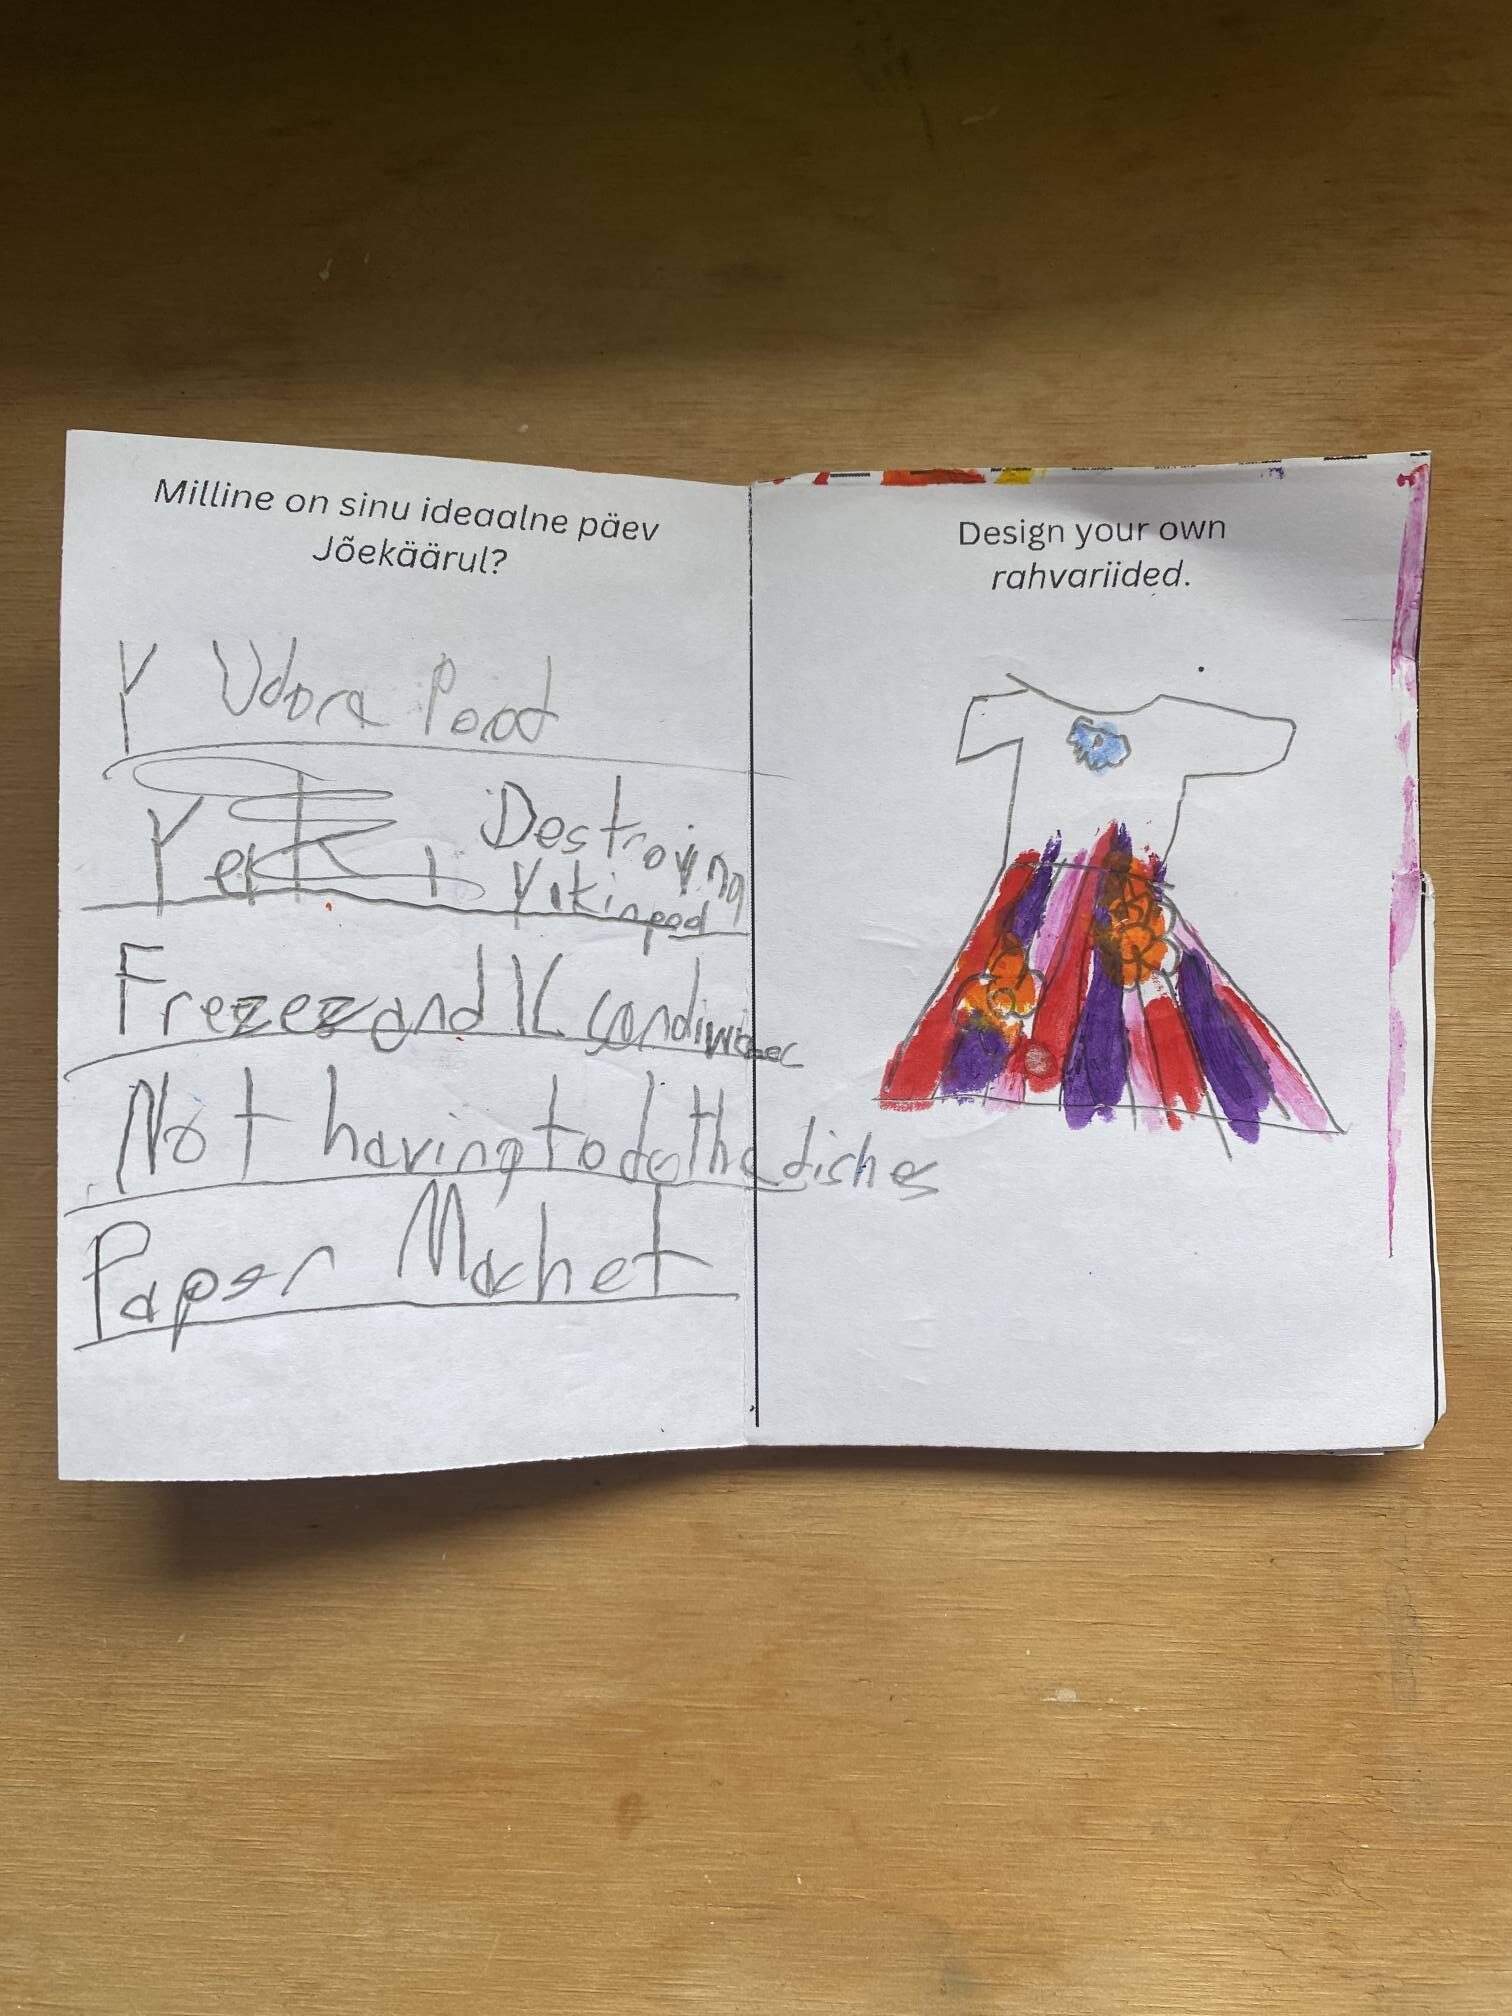 Milline on sinu ideaalne päev
Jõekäärul?
Y Udora Pood
Destroying
Yakinpod
Frezeez and IC sandiwches
Not having to do the dishes
Paper Machet
Design your own
rahvariided.